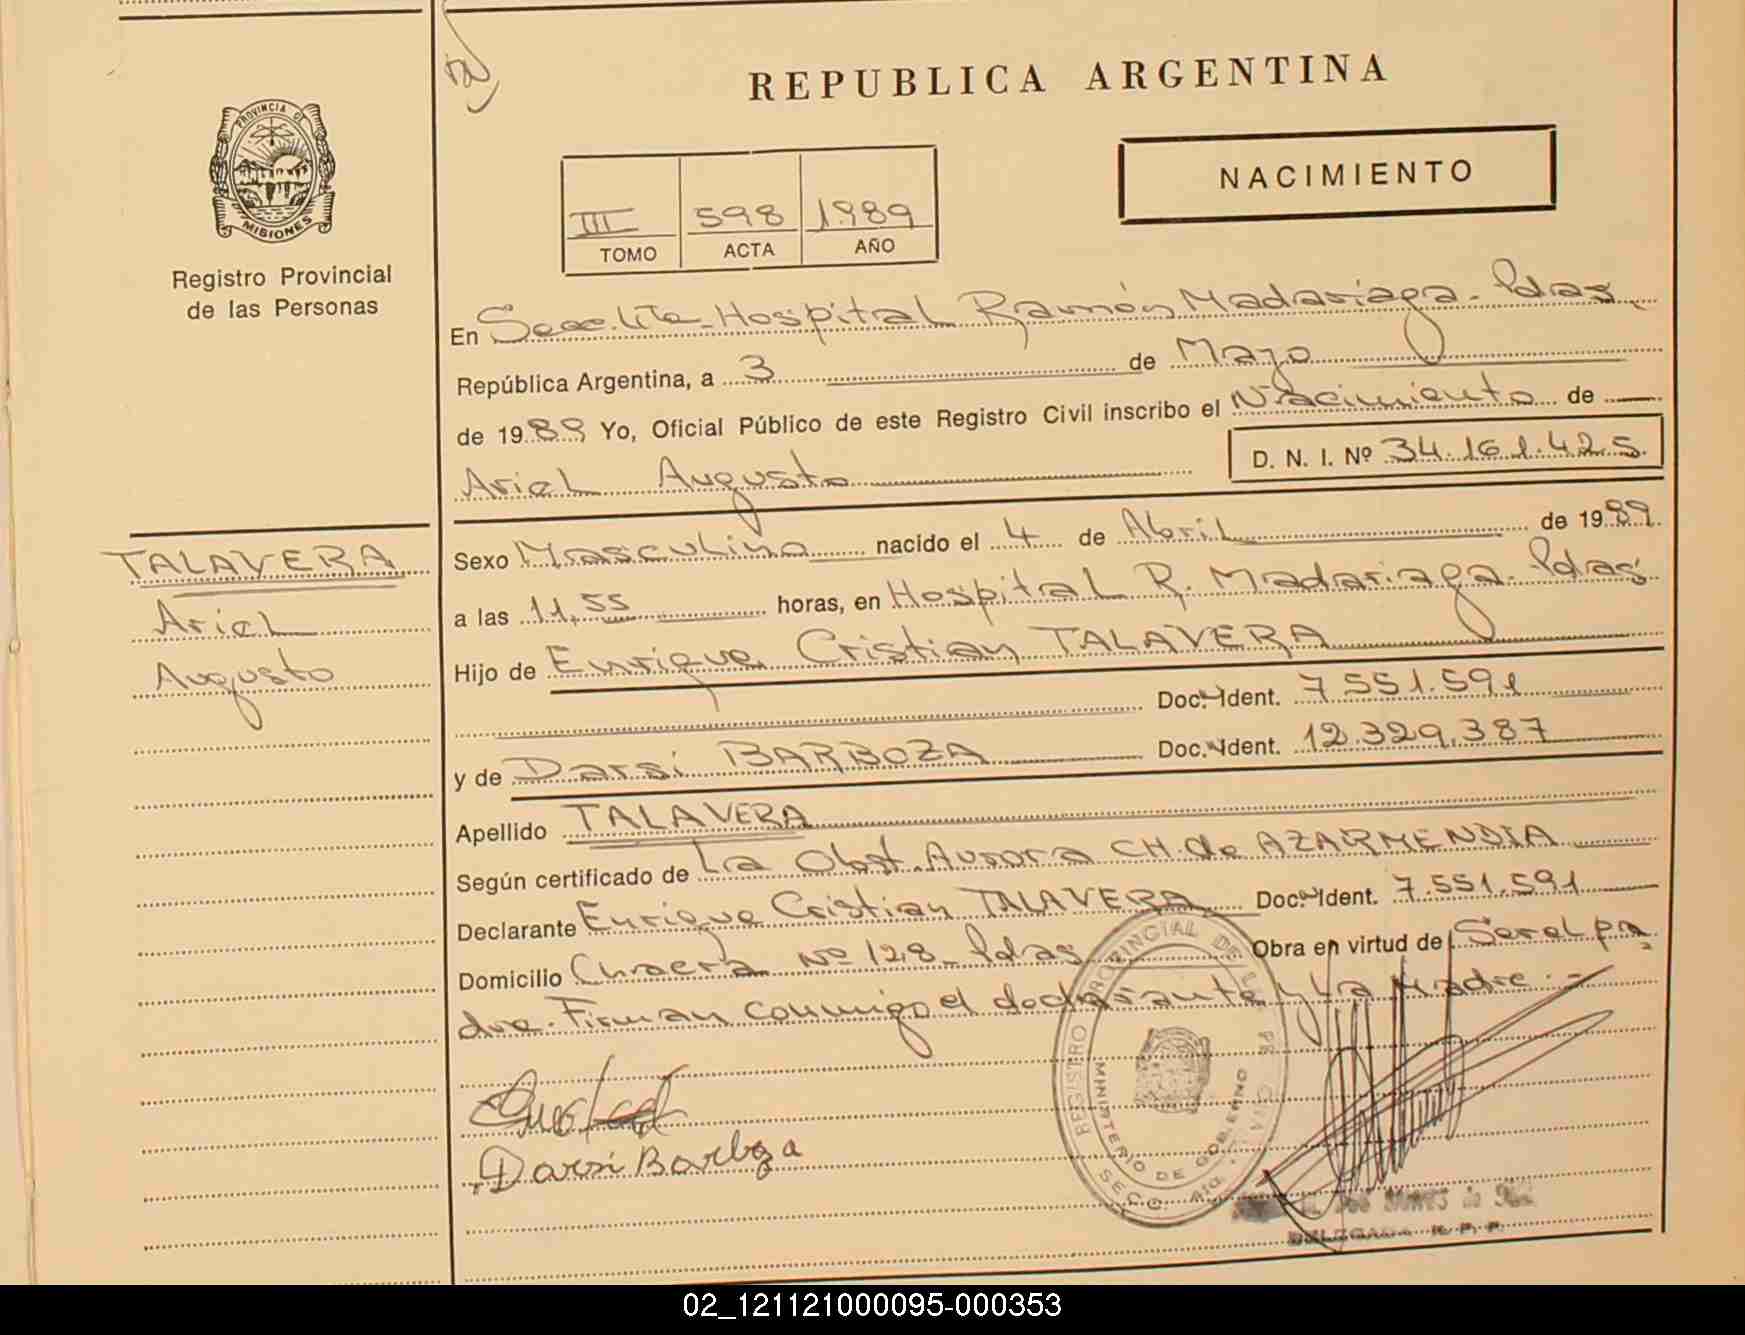 REPUBLICA ARGENTINA
NACIMIENTO
III 598 1989
TOMO ACTA AÑO
PROVINCIA DE MISIONES
Registro Provincial
de las Personas
TALAVERA
Ariel
Augusto
En Secc. Hospital Ramón Madariaga - Pdas
República Argentina, a 3 de Mayo
de 1989 Yo, Oficial Público de este Registro Civil inscribo el Nacimiento de
Ariel Augusto D. N. I. Nº 34.161.425
Sexo Masculino nacido el 4 de Abril de 1989
a las 11,55 horas, en Hospital R. Madariaga - Pdas
Hijo de Enrique Cristian TALAVERA
Doc. Ident. 7.551.591
y de Darsi BARBOZA Doc. Ident. 12.329.387
Apellido TALAVERA
Según certificado de La Obst. Aurora CH. de AZARMENDIA
Declarante Enrique Cristian TALAVERA Doc. Ident. 7.551.591
Domicilio Chacra Nº 128 - Pdas Obra en virtud de Ser el pa
dre. Firman conmigo el declarante y La Madre. -
Darsi Barboza
REGISTRO PROVINCIAL DE LAS
MINISTERIO DE GOBIERNO
SECC.
DELEGADA R. P. P.
02_121121000095-000353